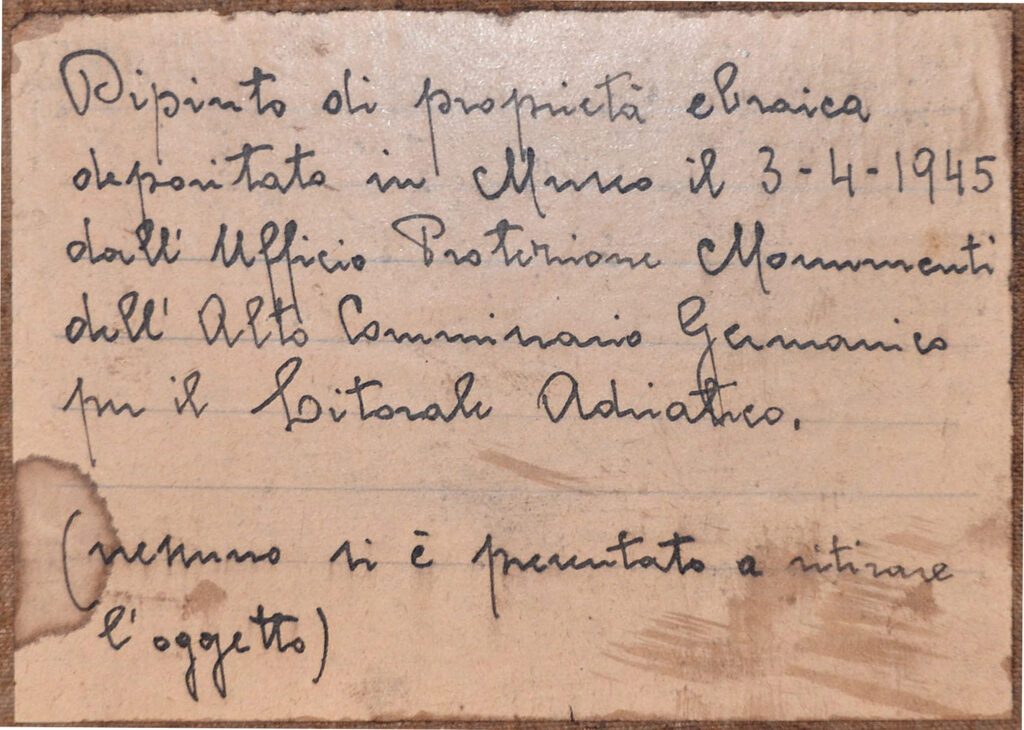 Dipinto di proprietà ebraica
depositato in Museo il 3-4-1945
dall' Ufficio Protezione Monumenti
dell' Alto Commissario Germanico
per il Litorale Adriatico.
(nessuno si è presentato a ritirare
l'oggetto)